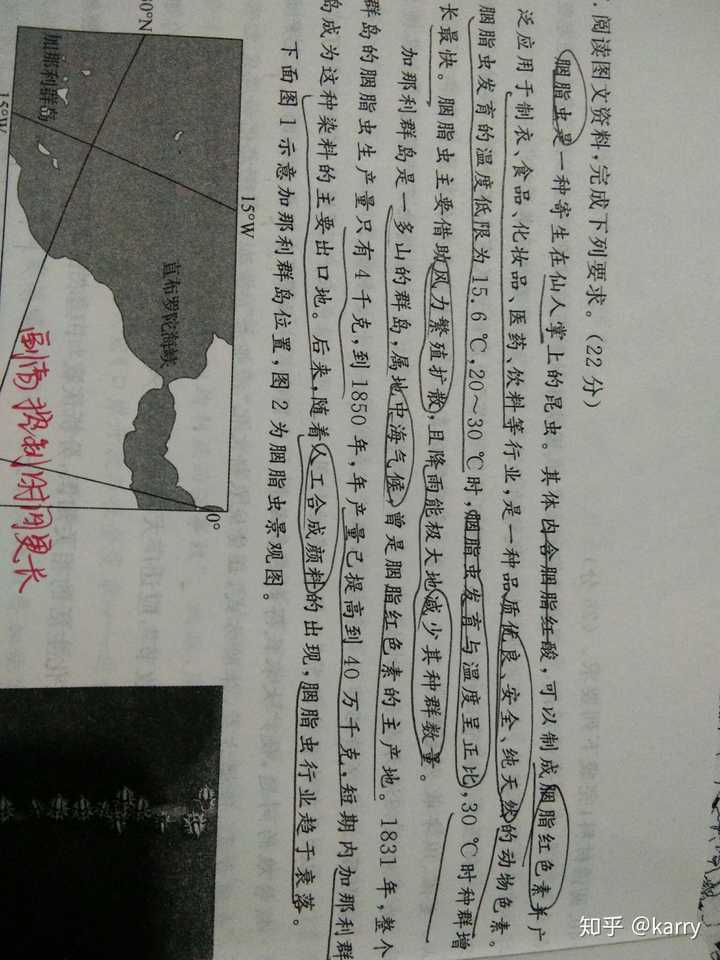 阅读图文资料,完成下列要求。(22分)
胭脂虫是一种寄生在仙人掌上的昆虫。其体内含胭脂红酸,可以制成胭脂红色素并广
泛应用于制衣、食品、化妆品、医药、饮料等行业,是一种品质优良、安全、纯天然的动物色素。
胭脂虫发育的温度低限为15.6℃,20~30℃时,胭脂虫发育与温度呈正比,30℃时种群增
长最快。胭脂虫主要借助风力繁殖扩散,且降雨能极大地减少其种群数量。
加那利群岛是一多山的群岛,属地中海气候,曾是胭脂红色素的主产地。1831年,整个
群岛的胭脂虫生产量只有4千克,到1850年,年产量已提高到40万千克,短期内加那利群
岛成为这种染料的主要出口地。后来,随着人工合成颜料的出现,胭脂虫行业趋于衰落。
下面图1示意加那利群岛位置,图2为胭脂虫景观图。
15°W
0°
直布罗陀海峡
加那利群岛
15°W
知乎 @karry